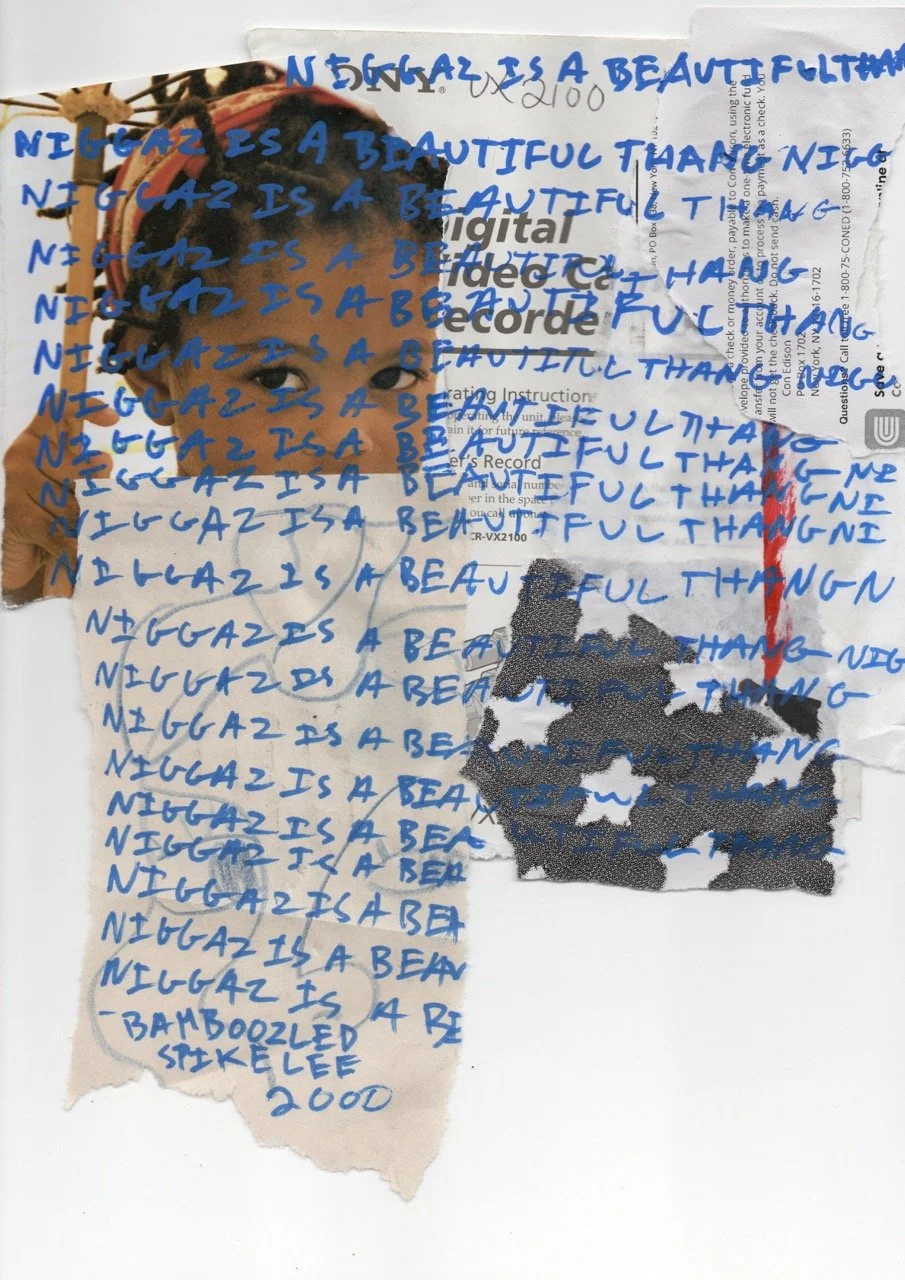 NIGGAZ IS A BEAUTIFUL THANG
SONY® VX2100
NIGGAZ IS A BEAUTIFUL THANG NIGG
NIGGAZ IS A BEAUTIFUL THANG
NIGGAZ IS A BEAUTIFUL THANG
NIGGAZ IS A BEAUTIFUL THANG
NIGGAZ IS A BEAUTIFUL THANG NIGG
NIGGAZ IS A BEAUTIFUL THANG
NIGGAZ IS A BEAUTIFUL THANG NI
NIGGAZ IS A BEAUTIFUL THANG NI
NIGGAZ IS A BEAUTIFUL THANG NI
NIGGAZ IS A BEAUTIFUL THANG N
NIGGAZ IS A BEAUTIFUL THANG NIG
NIGGAZ IS A BEAUTIFUL THANG
NIGGAZ IS A BEAUTIFUL THANG
NIGGAZ IS A BEAUTIFUL THANG
NIGGAZ IS A BEAUTIFUL THANG
NIGGAZ IS A BEA
NIGGAZ IS A BEA
NIGGAZ IS A BEAU
NIGGAZ IS A BE
-BAMBOOZLED
SPIKE LEE
2000
igital
ideo Ca
ecorde
rating Instruction
ain it for future reference
er's Record
and serial numbe
er in the space
ou call upon
CR-VX2100
check or money order, payable to Con Edison, using the
will not get the check back. Do not send cash.
Con Edison
PO Box 1702
New York, NY 10116-1702
Questions? Call toll free 1-800-75-CONED (1-800-752-6633)